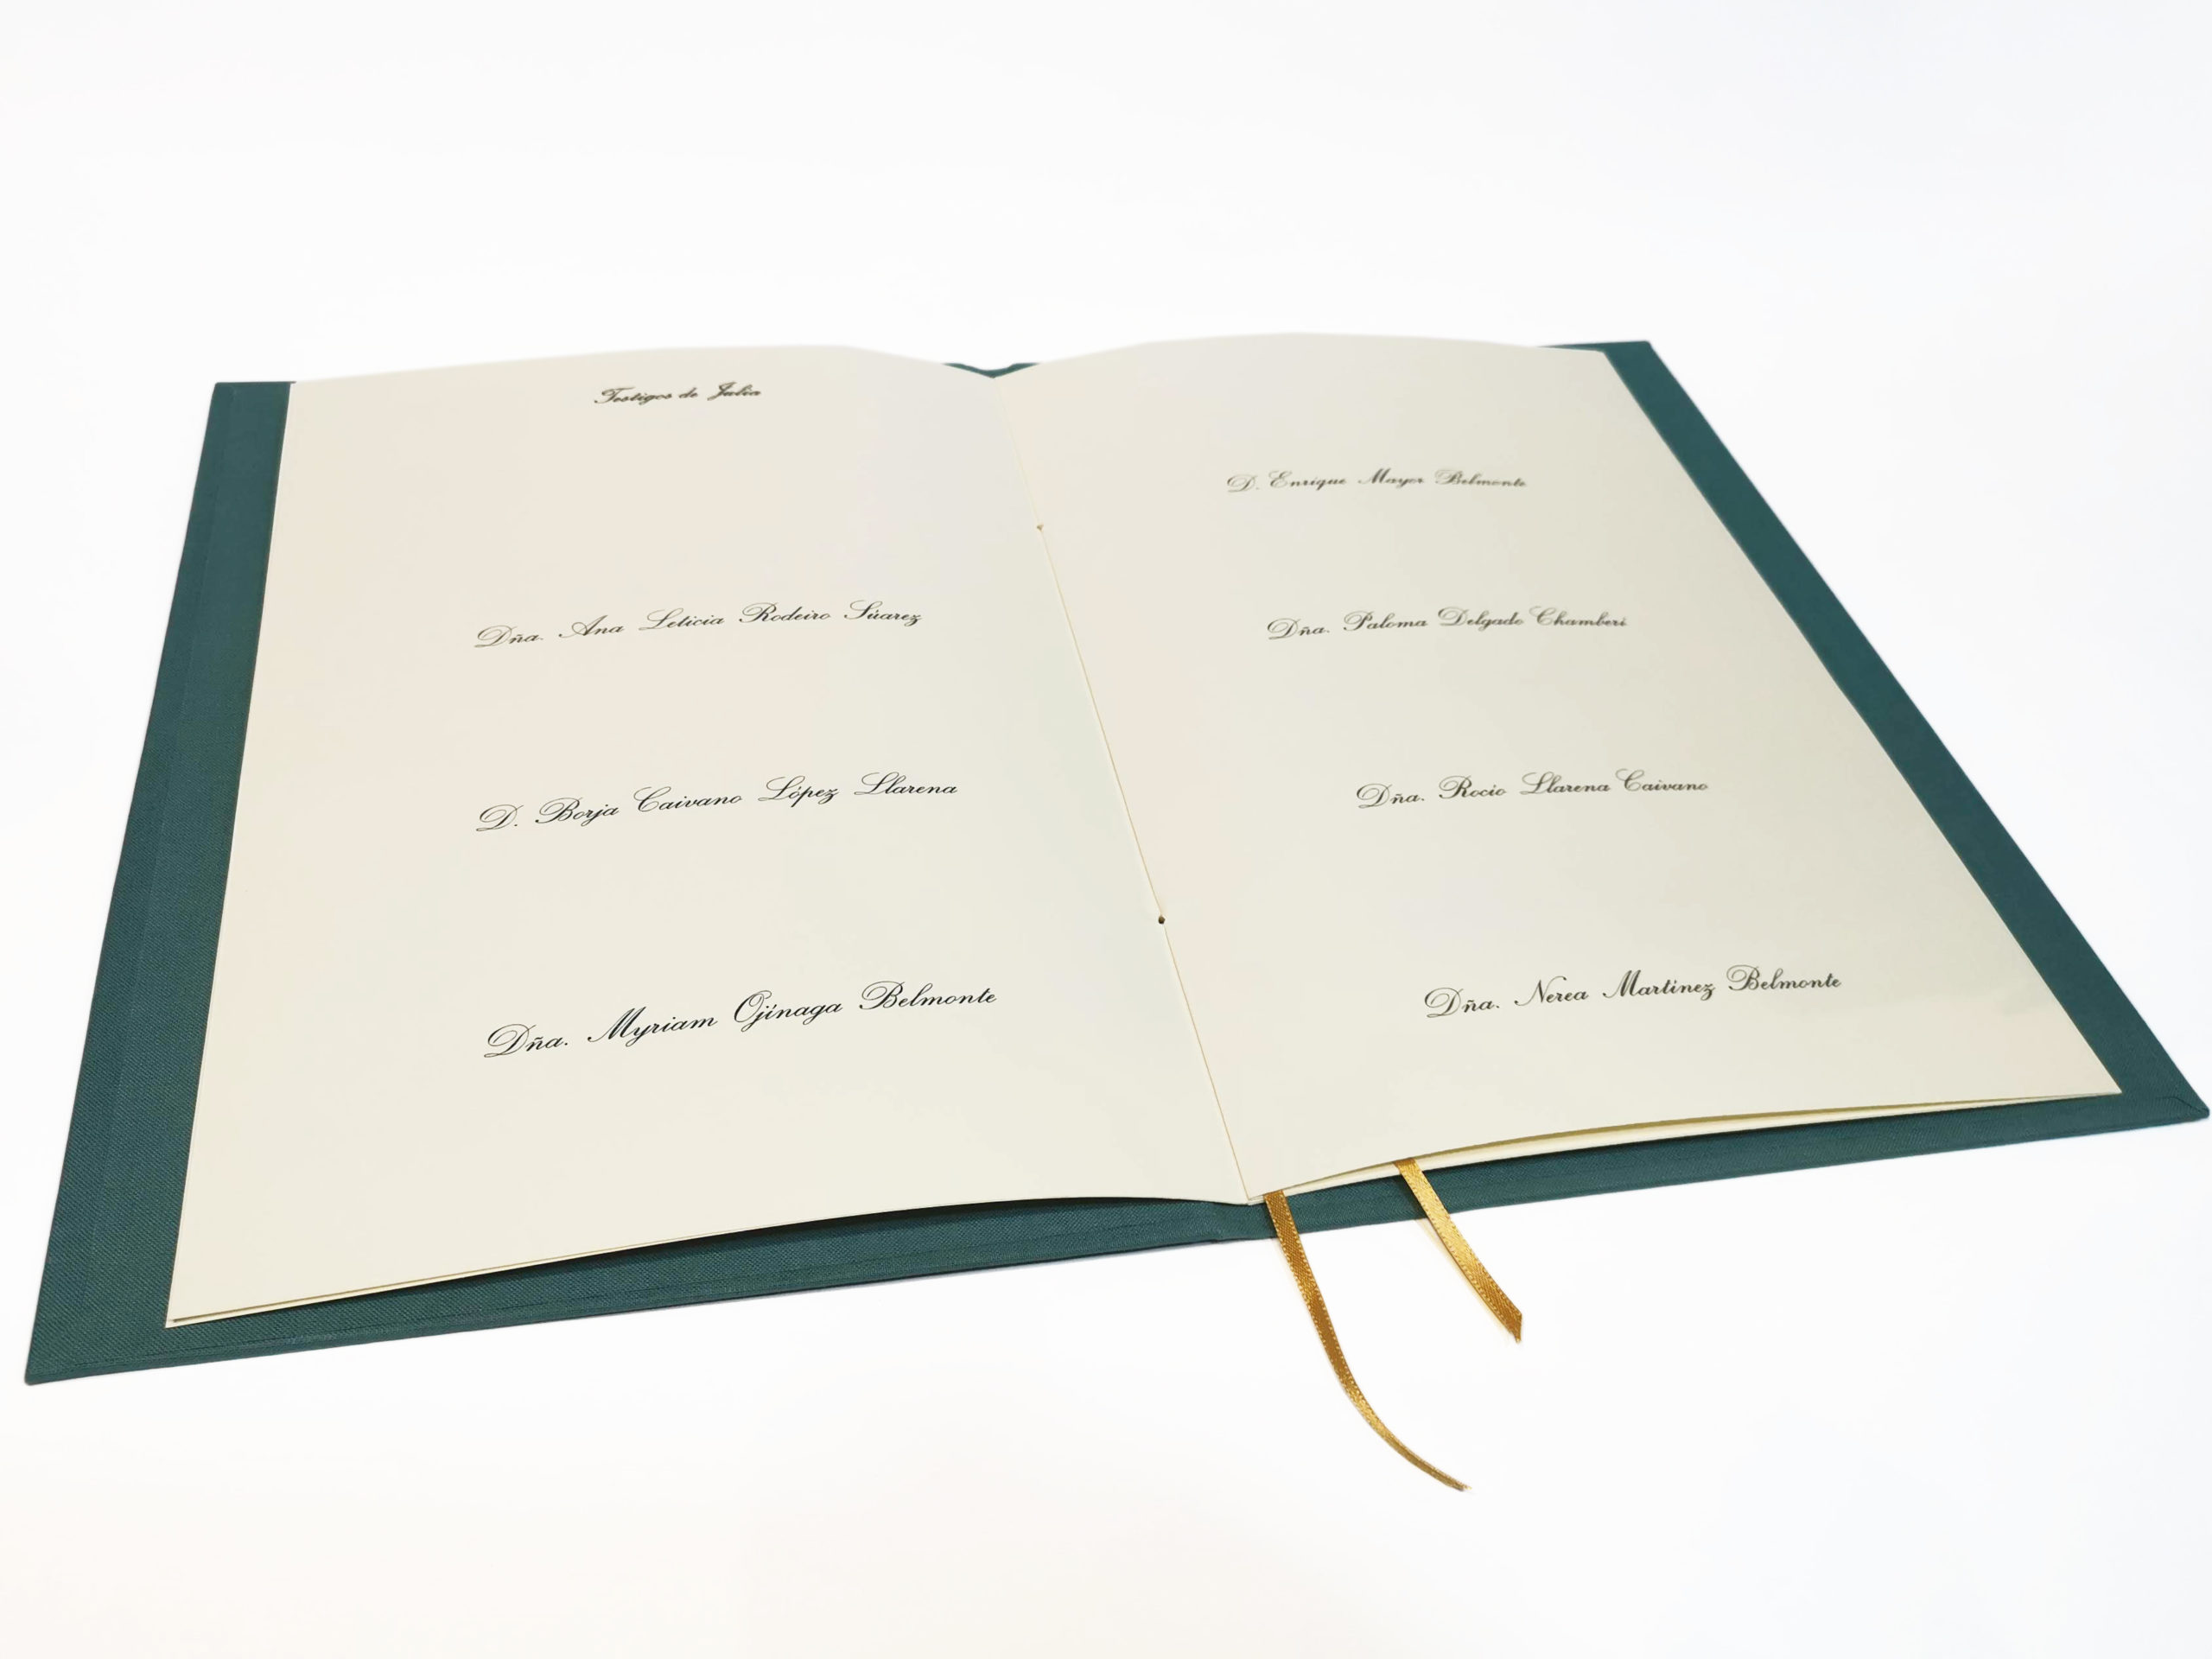 Testigos de Julia
Dña. Ana Leticia Rodeiro Súarez
D. Borja Caivano López Llarena
Dña. Myriam Ojínaga Belmonte
D. Enrique Mayor Belmonte
Dña. Paloma Delgado Chamberí
Dña. Rocío Llarena Caivano
Dña. Nerea Martínez Belmonte